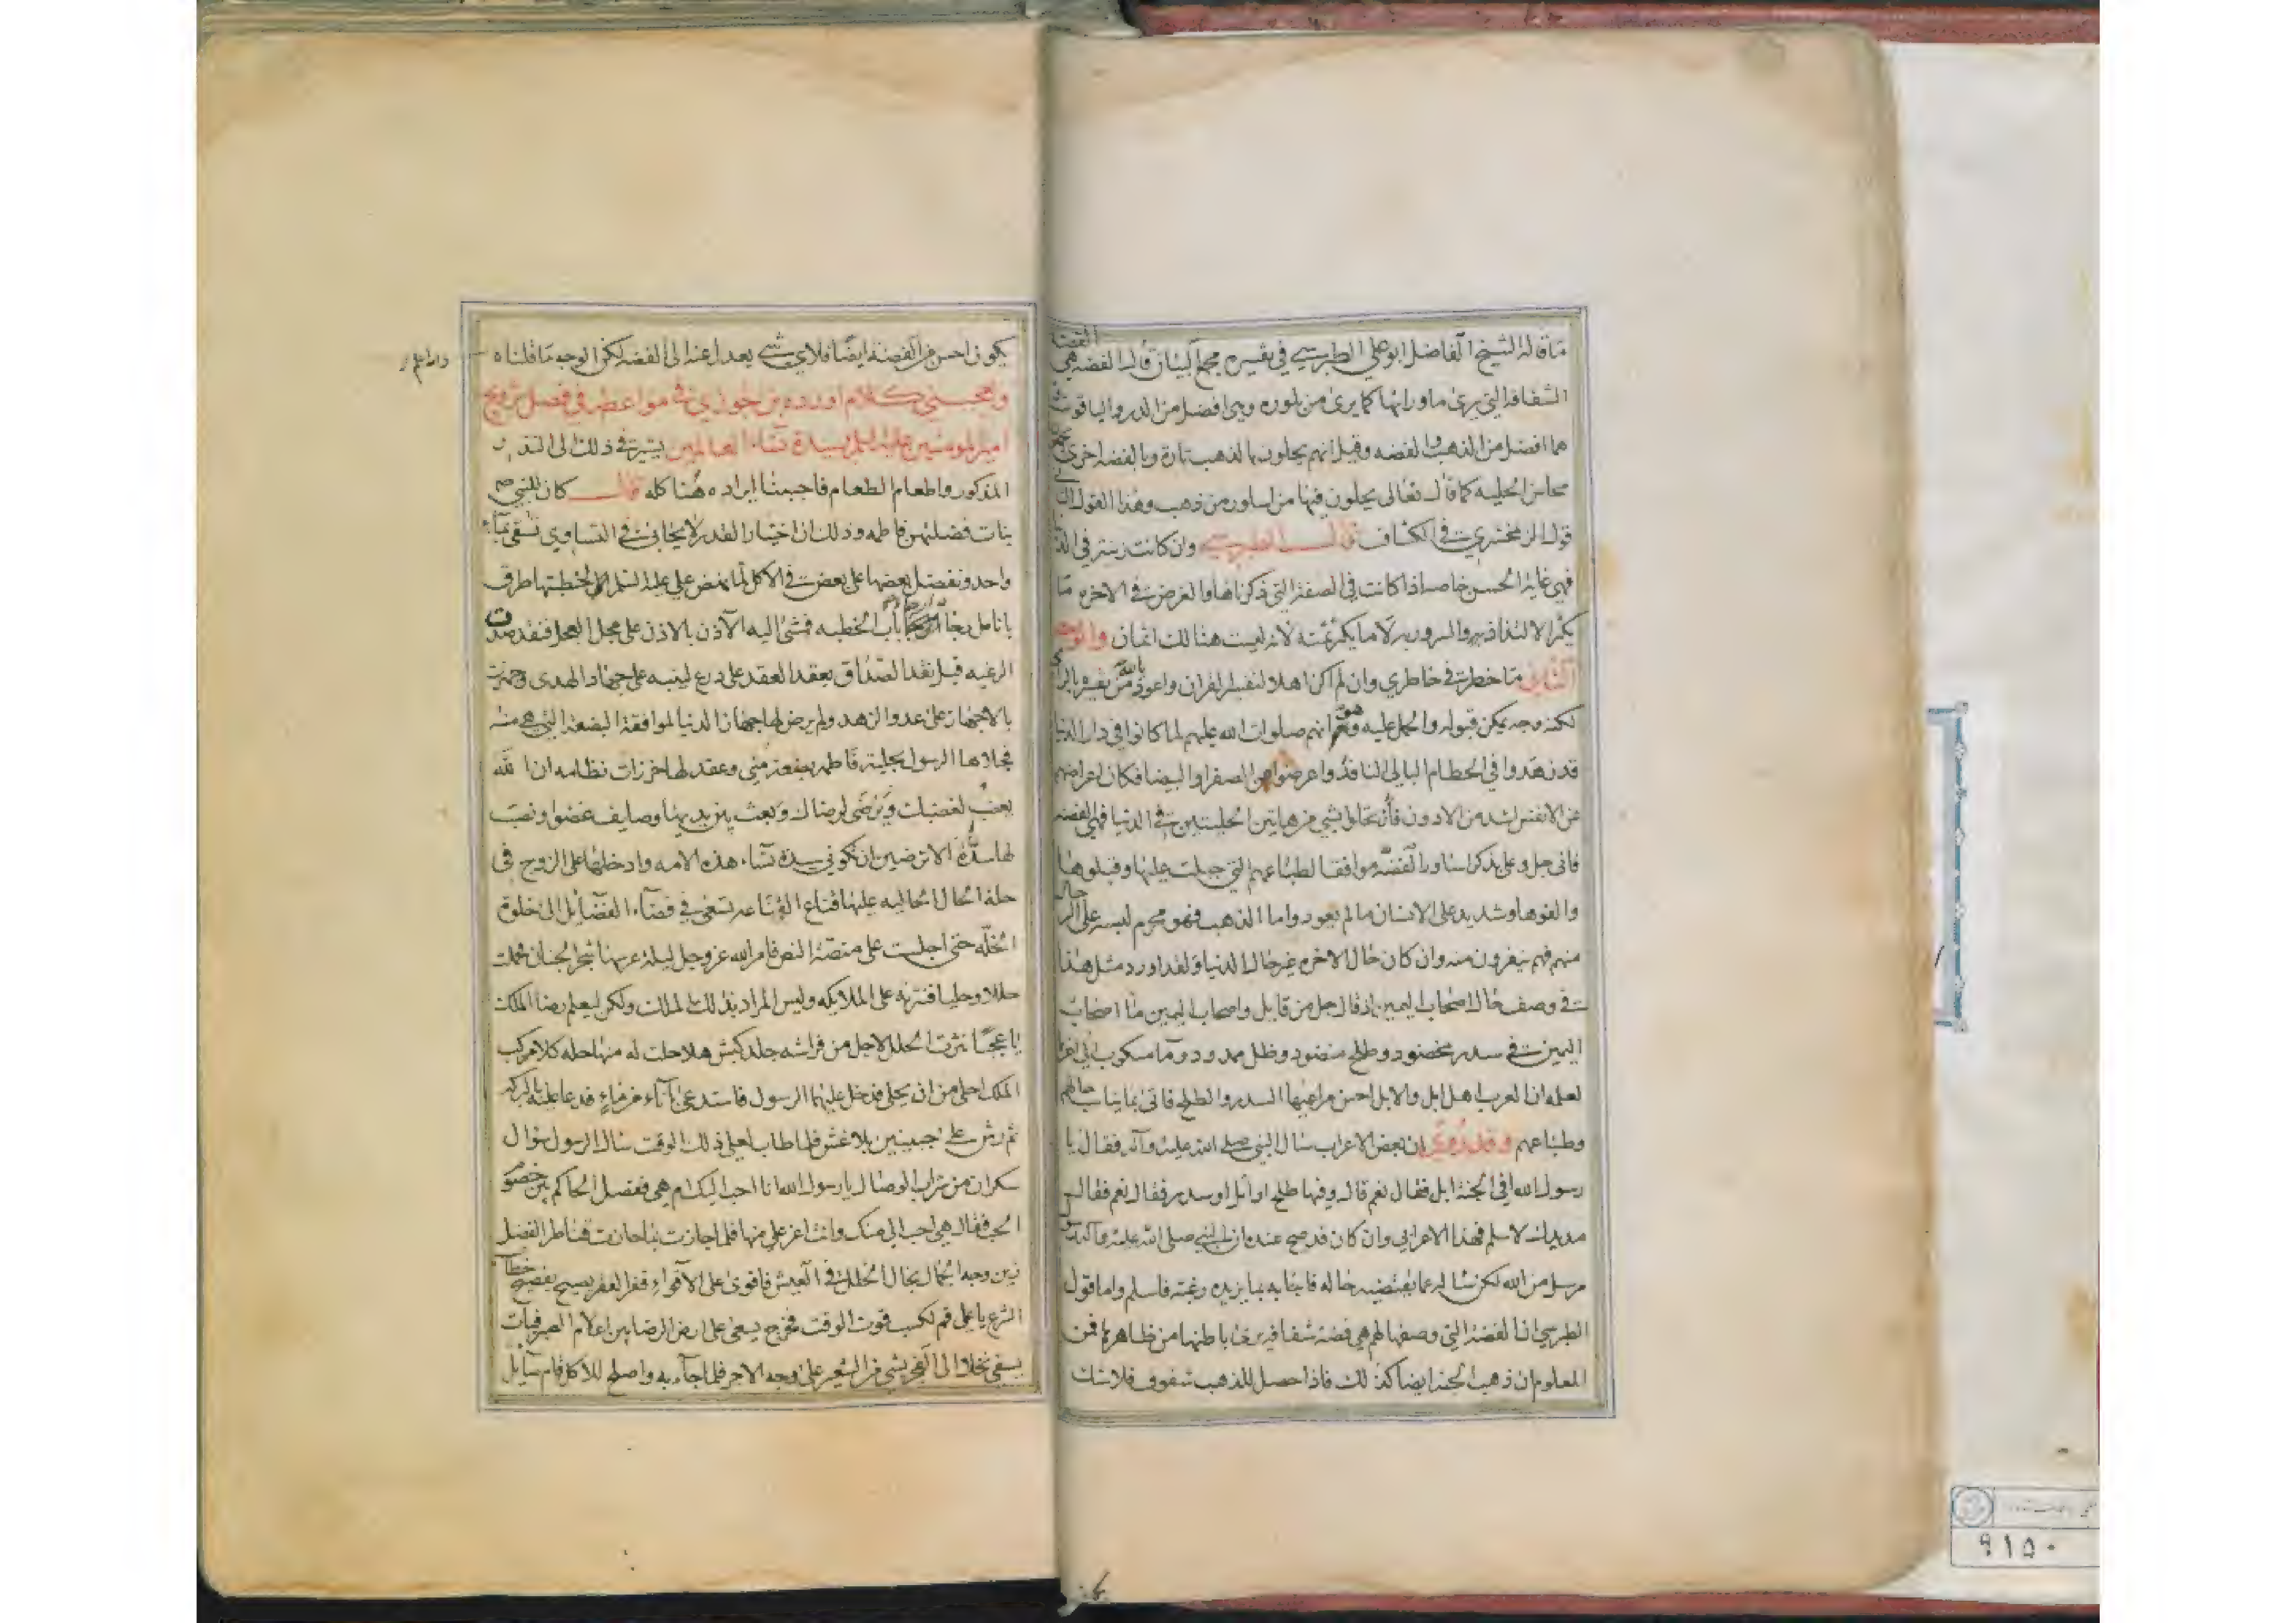 ما قاله الشيخ الفاضل ابو علي الطبرسي في تفسيره مجمع البيان قال الفضة هي
الشفافة التي يرى ماورائها كما يرى من بلوره وهي افضل من الدر والياقوت
هما افضل من الذهب والفضه وقيل انهم يحلون بالذهب تارة وبالفضه اخرى
محاسن الحليه كما قال تعالى يحلون فيها من اساور من ذهب وهذا القول
قول الزمخشري في الكشاف قال الطبرسي وان كانت زينته في
فهي غاية الحسن خاصه اذا كانت في الصفة التي ذكرناها والغرض في الاخره ما
يكثر الالتذاذ به والسرور به لا ما يكثر ثمنه لانه ليست هنالك اثمان والوجه
الثاني ما خطر في خاطري وان لم اكن اهلا لتفسير القران واعوذ بالله من تفسيره
لكنه وجه يمكن قبوله والحمل عليه وهو انهم صلوات الله عليهم لما كانوا في دار الدنيا
قد زهدوا في الحطام البالي النافد واعرضوا عن الصفرا والبيضا فكان اعراضهم
عن الانفس اشد من الادون فان تحلى بشي من هاتين الحليتين في الدنيا فهي الفضه
فاتى جل وعلى بذكر اساور الفضه موافقا لطباعهم التي جبلت عليها وقبلوها
والفوها وشديد على الانسان ما لم يعود واما الذهب فهو محرم لبسه على الرجال
منهم فهم ينفرون منه وان كان حال الاخره غير حال الدنيا ولقد اورد مثل هذا
في وصف حال اصحاب اليمين اذ قال جل من قايل واصحاب اليمين ما اصحاب
اليمين في سدر مخضود وطلح منضود وظل ممدود وماء مسكوب
لعله ان العرب اهل ابل والابل احسن مراعيها السدر والطلح فاتى بما يناسب حالهم
وطباعهم وقد روي ان بعض الاعراب سال النبي صلى الله عليه وآله فقال يا
رسول الله افي الجنة ابل فقال نعم قال وفيها طلح او سدر فقال نعم فقال
مد يدك لاسلم فهذا الاعرابي وان كان قد صح عنده ان النبي صلى الله عليه وآله
مرسل من الله لكن ساله عما يقتضيه حاله فاجابه بما يزيده رغبته فاسلم واما قول
الطبرسي ان الفضة التي وصفها لهم هي فضة شفافة يرى باطنها من ظاهرها فمن
المعلوم ان ذهب الجنه ايضا كذلك فاذا حصل للذهب شفوف فلا شك
يكون احسن من الفضة ايضا فلاي شي يعدل عنه الى الفضه لكن الوجه ما قلناه
والله اعلم
واعجبني كلام اورده بن جوزي في مواعظه في فضل تزويج
امير المومنين عليه السلم بسيدة نساء العالمين يشير في ذلك الى النذر
المذكور واطعام الطعام فاحببنا ايراده هنا كله قال كان للنبي ص
بنات فضلتهن فاطمه وذلك ان اختيار القدر لا يحابي في التساوي تسقى بماء
واحد ونفضل بعضها على بعض في الاكل لما نهض علي عليه السلم لخطبتها طرق
بانامل باب الخطبه فمشى اليه الآذن بالاذن على عجل العجل فنقد
الرغبه قبل نقد الصداق بعقد العقد على درع لينبه على جهاد الهدى
بالاجتهاد على عدو الزهد ولم يرض لها جهاز الدنيا لموافقة البضعة التي هي منه
فجلاها الرسول بجلية فاطمه بضعة مني وعقد لها خرزات نظامه ان الله
يغضب لغضبك ويرضى لرضاك وبعث بين يديها وصايف غضوا ونصب
لها سدة الا ترضين ان تكوني سيدة نساء هذه الامه وادخلها على الزوج في
حلة الحال الحاليه عليها قناع القناعه تسعى في فضاء الفضايل الى خلوة
الخلّه حتى اجليت على منصة النص فامر الله عز وجل ليلة عرسها شجر الجنان فحملت
حللا وحليا فنثرته على الملايكه وليس المراد بذلك الملك ولكن ليعلم رضا الملك
يا عجبا نثرت الحلل لاجل من فراشه جلد كبش هلا حلت له منها حله كلا مركب
الملك احلى من ان يحلى فدخل عليهما الرسول فاستدعى باناء من ماء فدعا عليه بالبركه
ثم رش على جبينين بلا غش فلما طاب لعلي ذلك الوقت سال الرسول سوال
سكران من شراب الوصال يا رسول الله انا احب اليك ام هي ففصل الحاكم بين خصوم
الحب فقال هي احب الي منك وانت اعز علي منها فلما اجازت قناطر الفضل
زين وجه الجمال بخال الخلل في العيش فاقوى على الاقواء فقر الفقر يصيح بفصيح
الشرع يا علي قم لكسب قوت الوقت فخرج يسعى على ارض الرضا بين اعلام الصبر فبات
يسقي نخلا الى الفجر بشي من الشعير على وجه الاجر فلما جاء به واصلح للاكل قام سايل
٩١٥٠